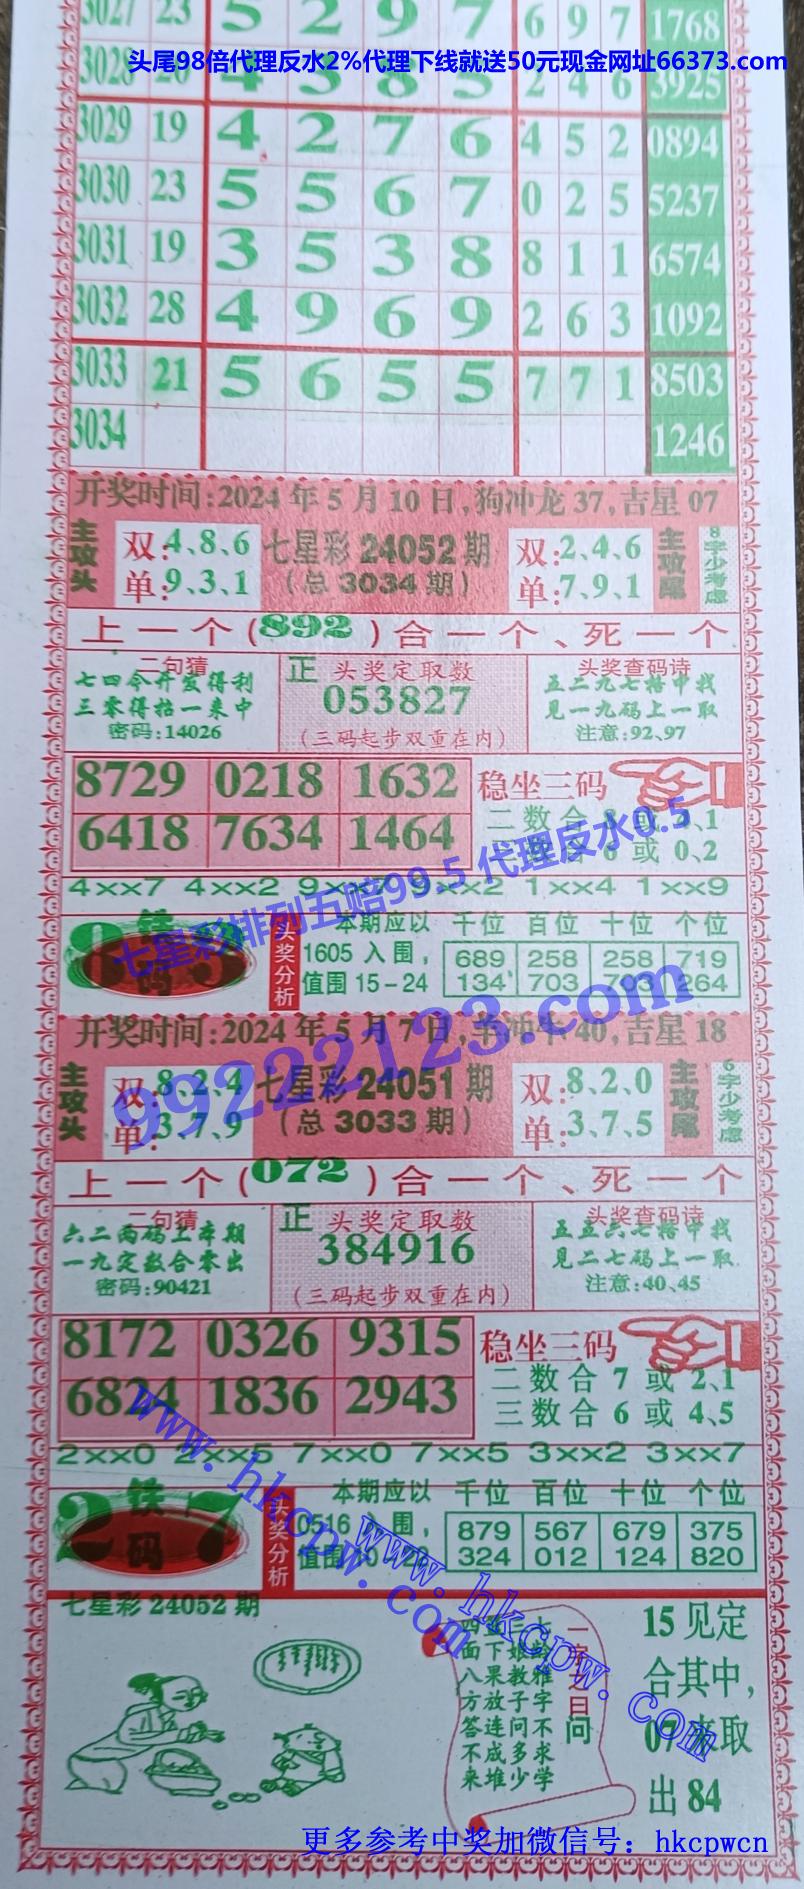 3027 23 5 2 9 7 6 9 7 1768
头尾98倍代理反水2%代理下线就送50元现金网址66373.com
3028 20 4 3 8 5 2 4 6 3925
3029 19 4 2 7 6 4 5 2 0894
3030 23 5 5 6 7 0 2 5 5237
3031 19 3 5 3 8 8 1 1 6574
3032 28 4 9 6 9 2 6 3 1092
3033 21 5 6 5 5 7 7 1 8503
3034 1246
开奖时间:2024年5月10日,狗冲龙37,吉星07
主攻头
双:4、8、6
单:9、3、1
七星彩24052期
(总3034期)
双:2、4、6
单:7、9、1
主攻尾
8字少考虑
上一个(892)合一个、死一个
二句猜
七四今开发得利
三零得抬一来中
密码:14026
正 头奖定取数
053827
(三码起步双重在内)
头奖查码诗
五二九七格中找
见一九码上一取
注意:92、97
8729 0218 1632
6418 7634 1464
稳坐三码
二数合 或 1
三数合6或0、2
4××7 4××2 9××7 9××2 1××4 1××9
七星彩排列五赔99.5 代理反水0.5
铁码
头奖分析
本期应以
1605入围,
值围15-24
千位 百位 十位 个位
689 258 258 719
134 703 703 264
99222123.com
开奖时间:2024年5月7日,羊冲牛40,吉星18
主攻头
双:8、2、4
单:3、7、9
七星彩24051期
(总3033期)
双:8、2、0
单:3、7、5
主攻尾
6字少考虑
上一个(072)合一个、死一个
二句猜
六二两码上本期
一九定数合零出
密码:90421
正 头奖定取数
384916
(三码起步双重在内)
头奖查码诗
五五六七格中找
见二七码上一取
注意:40、45
8172 0326 9315
6824 1836 2943
稳坐三码
二数合7或2、1
三数合6或4、5
2××0 2××5 7××0 7××5 3××2 3××7
2铁码7
头奖分析
本期应以
0516入围,
值围
千位 百位 十位 个位
879 567 679 375
324 012 124 820
www.hkcpw.com
www.hkcpw.com
七星彩24052期
一字之曰问
字不求学
教子问多少
下果放连成堆
四面八方答不来
15见定
合其中,
07来取
出84
更多参考中奖加微信号：hkcpwcn